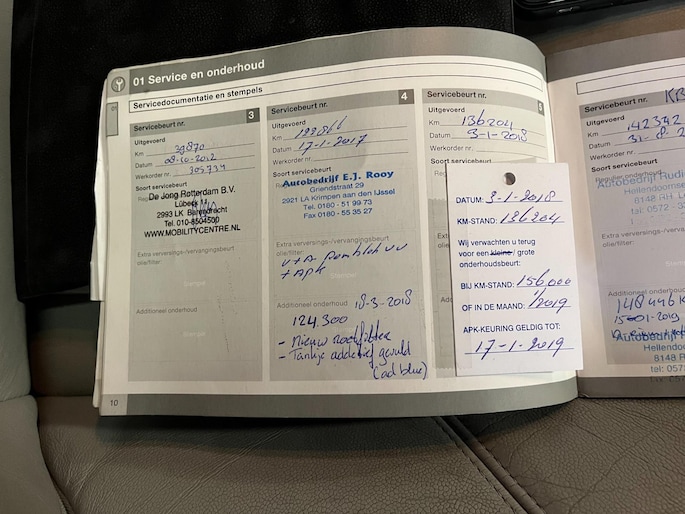 01 Service en onderhoud
Servicedocumentatie en stempels
Servicebeurt nr. 3
Uitgevoerd
Km
Datum 08-10-2012
Werkorder nr.
Soort servicebeurt
De Jong Rotterdam B.V.
Lübeck 11
2993 LK Barendrecht
Tel. 010-8504500
WWW.MOBILITYCENTRE.NL
Extra verversings-/vervangingsbeurt
olie/filter:
Stempel
Additioneel onderhoud
Stempel
10
Servicebeurt nr. 4
Uitgevoerd
Km
Datum 17-1-2017
Werkorder nr.
Soort servicebeurt
Autobedrijf E.J. Rooy
Griendstraat 29
2921 LA Krimpen aan den IJssel
Tel. 0180 - 51 99 73
Fax 0180 - 55 35 27
Extra verversings-/vervangingsbeurt
olie/filter:
+ APK
Additioneel onderhoud 18-3-2018
124.300
- Nieuw roetfilter
- Tankje addetief gevuld
(ad blue)
Servicebeurt nr. 5
Uitgevoerd
Km 136204
Datum 3-1-2018
Werkorder nr.
DATUM: 3-1-2018
KM-STAND: 136204
Wij verwachten u terug
voor een kleine / grote
onderhoudsbeurt:
BIJ KM-STAND: 156.000
OF IN DE MAAND: 1/2019
APK-KEURING GELDIG TOT:
17-1-2019
Servicebeurt nr.
Uitgevoerd
Km 142342
Datum
Werkorder nr.
Soort servicebeurt
Autobedrijf Rudi
Hellendoornse
8148 RH
tel: 0572
Extra verversings
olie/filter:
Additioneel onderh
Autobedrijf Rudi
Hellendo
8148 R
tel: 057